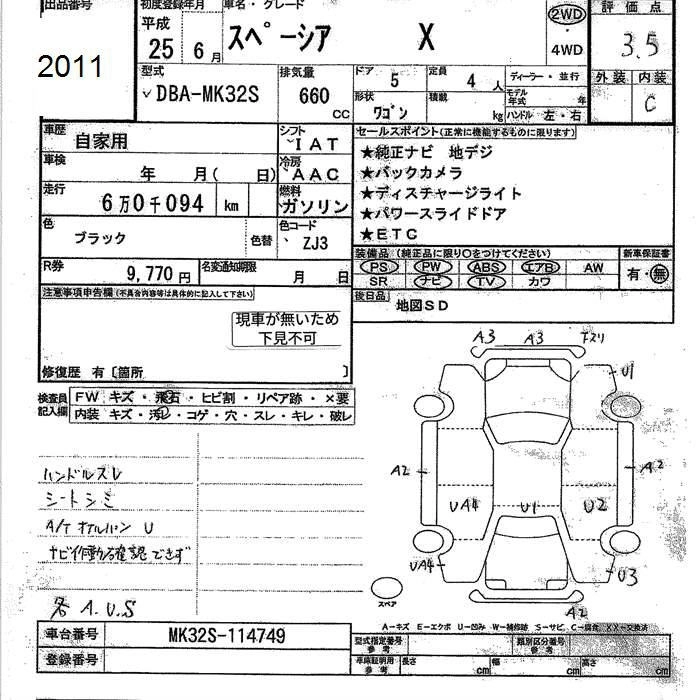 出品番号
2011
初度登録年月
平成
25 6月
車名・グレード
スペーシア X
2WD
・
4WD
評価点
3.5
外装 内装
C
型式
DBA-MK32S
排気量
660 CC
ドア
5
定員
4 人
形状
ワゴン
積載
kg
ディーラー・並行
モデル年式 年
ハンドル 左・右
車歴
自家用
シフト
IAT
車検
年 月( 日)
冷房
AAC
走行
6万0千094 km
燃料
ガソリン
色
ブラック
色替
色コード
ZJ3
R券
9,770円
名変通知期限
月 日
セールスポイント(正常に機能するものに限ります)
★純正ナビ 地デジ
★バックカメラ
★ディスチャージライト
★パワースライドドア
★ETC
装備品(純正品に限り○をつけてください)
PS PW ABS エアB AW
SR ナビ TV カワ
新車保証書
有・無
後日品
地図SD
注意事項申告欄(不具合内容等は具体的に記入して下さい)
現車が無いため
下見不可
修復歴 有〔箇所 〕
検査員記入欄
FW キズ・飛石・ヒビ割・リペア跡・×要
内装 キズ・汚レ・コゲ・穴・スレ・キレ・破レ
ハンドルスレ
シートシミ
A/Tオイルパン U
ナビ作動確認できず
各 A.U.S
A3 A3 U1
A2 A2
UA4 U1 U2
UA4 U3
A2
スペア
A-キズ E-エクボ U-凹み W-補修跡 S-サビ C-腐蝕 XX-交換済
車台番号
MK32S-114749
登録番号
型式指定番号
参考
類別区分番号
参考
車庫証明用
参考
長さ cm
幅 cm
高さ cm